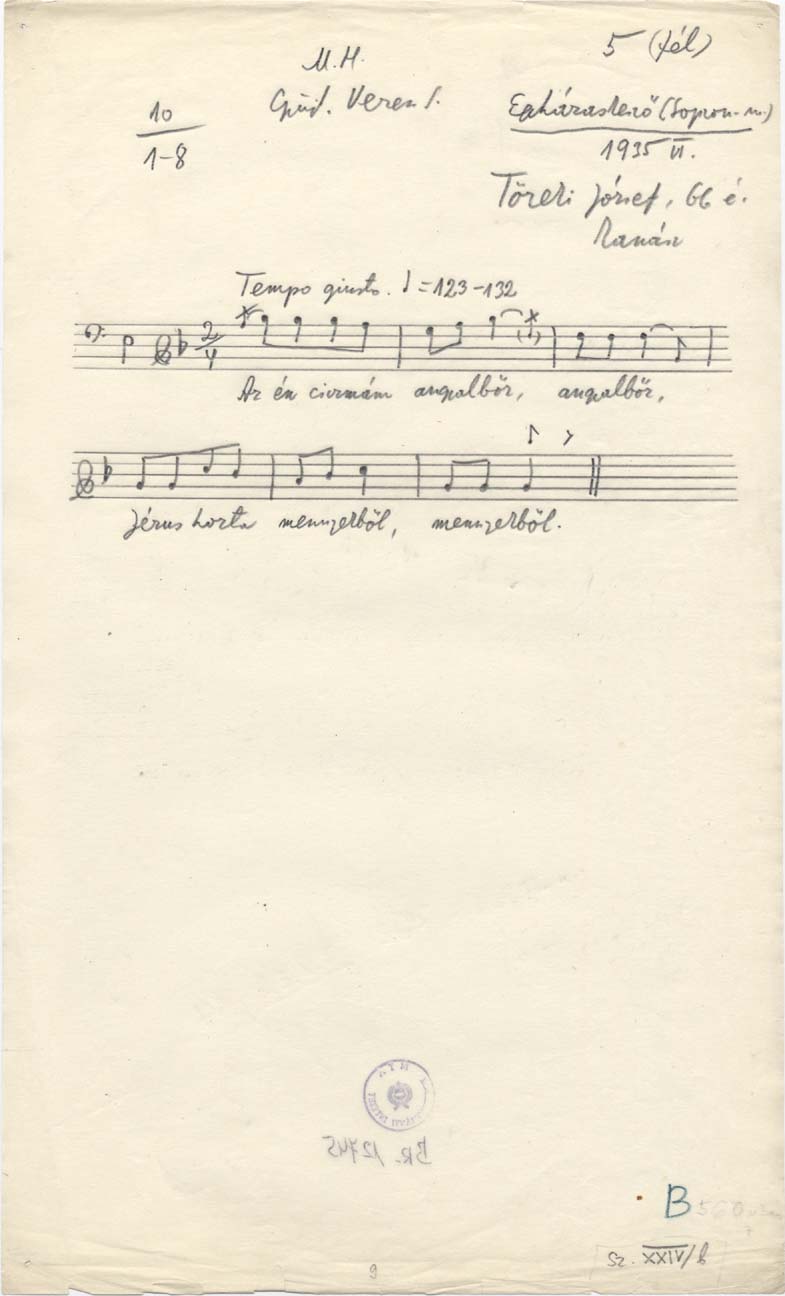 5 (fél)
M. H.
Gyűjt. Veress S.
10
1-8
Egyházaskesző (Sopron-m.)
1935 VI.
Töreki József, 66 é.
Kanász
Tempo giusto. ♩ = 123-132
2/4
Az én csizmám angyalbőr, angyalbőr,
Jézus hozta mennyekből, mennyekből.
BR. 12745
B
Sz. XXIV/b
9